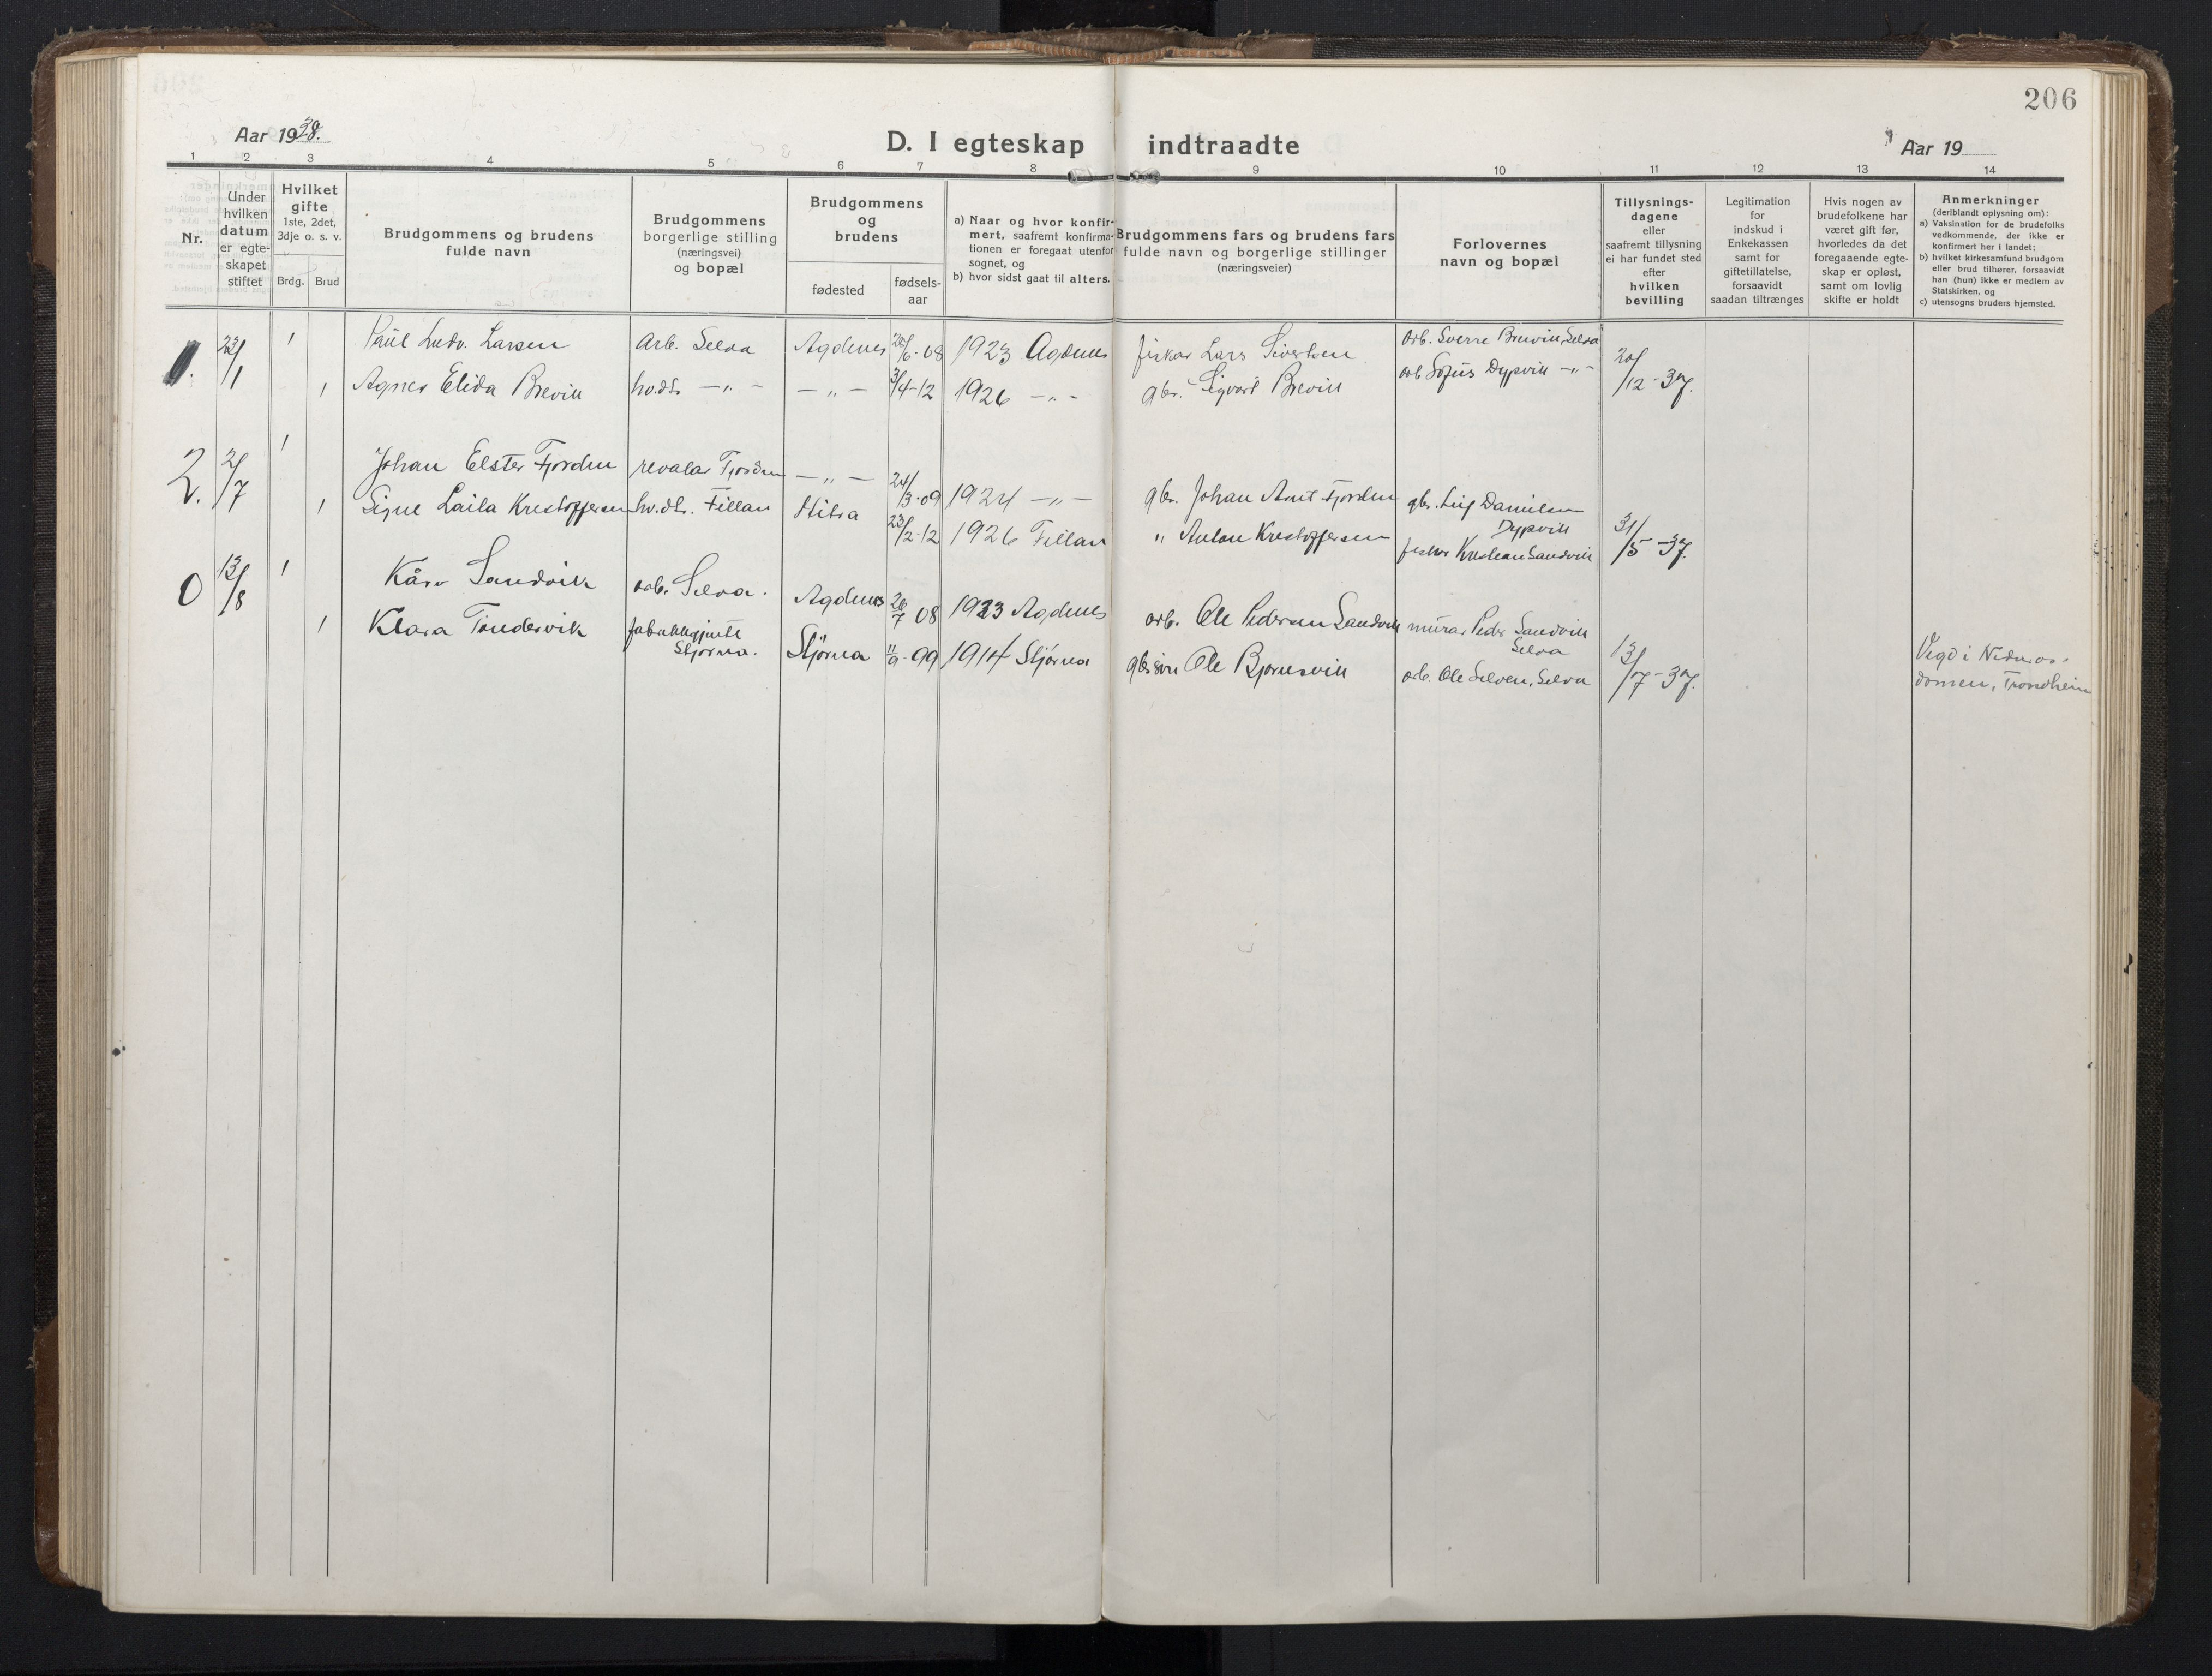 206
Aar 1938.
D. I egteskap indtraadte
Aar 19
1 2 3 4 5 6 7 8 9 10 11 12 13 14
Nr.
Under
hvilken
datum
er egte-
skapet
stiftet
Hvilket
gifte
1ste, 2det,
3dje o. s. v.
Brdg. Brud
Brudgommens og brudens
fulde navn
Brudgommens
borgerlige stilling
(næringsvei)
og bopæl
Brudgommens
og
brudens
fødested
fødsels-
aar
a) Naar og hvor konfir-
mert, saafremt konfirma-
tionen er foregaat utenfor
sognet, og
b) hvor sidst gaat til alters.
Brudgommens fars og brudens fars
fulde navn og borgerlige stillinger
(næringsveier)
Forlovernes
navn og bopæl
Tillysnings-
dagene
eller
saafremt tillysning
ei har fundet sted
efter
hvilken
bevilling
Legitimation
for
indskud i
Enkekassen
samt for
giftetillatelse,
forsaavidt
saadan tiltrænges
Hvis nogen av
brudefolkene har
været gift før,
hvorledes da det
foregaaende egte-
skap er opløst,
samt om lovlig
skifte er holdt
Anmerkninger
(deriblandt oplysning om):
a) Vaksination for de brudefolks
vedkommende, der ikke er
konfirmert her i landet;
b) hvilket kirkesamfund brudgom
eller brud tilhører, forsaavidt
han (hun) ikke er medlem av
Statskirken, og
c) utensogns bruders hjemsted.
1. 22/1 1 Paul Ludv. Larsen arb. Selva Agdenes 26/6-08 1923 Agdenes fisker Lars Sivertsen arb. Sverre Brevik, Selva 20/12-37.
1 Agnes Elida Brevik hv.dtr. -"- -"- 3/4-12 1926 -"- gbr. Sigvart Brevik arb. Sofus Dypvik -"-
2. 2/7 1 Johan Elster Fjorden revalar Fjorden -"- 24/3-09 1924 -"- gbr. Johan Arnt Fjorden gbr. Leif Danielsen
Dypvik
1 Signe Laila Kristoffersen hv.dtr. Fillan Hitra 23/2-12 1926 Fillan " Anton Kristoffersen fisker Kristian Sandvik 31/5-37.
0 13/8 1 Kåre Sandvik arb. Selva. Agdenes 26/7 08 1923 Agdenes arb. Ole Pedersen Sandvik murar Peder Sandvik
Selva
1 Klara Tøndervik fabrikkgjente
Stjørna. Stjørna 11/9-99 1914 Stjørna Ole Bjørnevik arb. Ole Selven, Selva 13/7-37.
Vigd i Nidaros-
domen, Trondheim